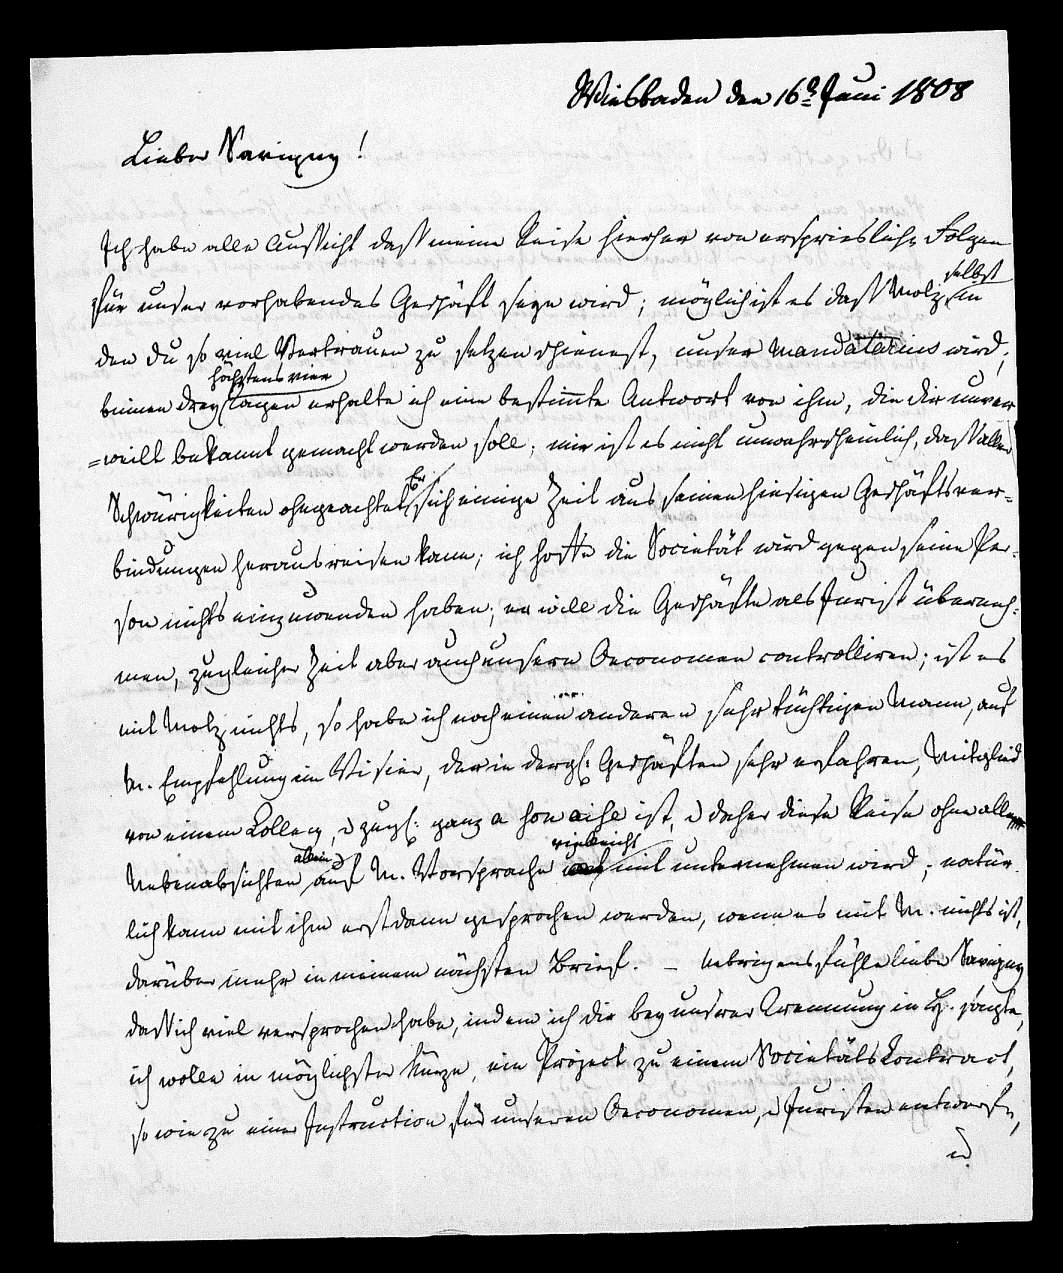 Wiesbaden den 16t Juni 1808
Lieber Savigny!
Ich habe alle Aussicht dass meine Reise hierher von ersprieslichen Folgen
für unser vorhabendes Geschäft seyn wird; möglich ist es dass Motz selbst, in
den du so viel Vertrauen zu setzen schienest, unser Mandatarius wird;
binnen drey höchstens vier Tagen erhalte ich eine bestimmte Antwort von ihm, die dir unver
=weilt bekannt gemacht werden soll; mir ist es nicht unwahrscheinlich, dass aller
Schwürigkeiten ohngeachtet Er sich einige Zeit aus seinen hiesigen Geschäftsver=
bindungen herausreisen kann; ich hoffe die Societät wird gegen seine Per=
son nichts einzuwenden haben; er will die Geschäfte als Jurist überneh=
men, zugleicher Zeit aber auch unsern Oeconomen controlliren; ist es
mit Motz nichts, so habe ich noch einen anderen sehr tüchtigen Mann, auf
M. Empfehlung im Visier, der in dergl: Geschäften sehr erfahren, Mitglied
von einem Colleg, u zugl: ganz a son aise ist, u daher diese Reise ohne alle
Nebenabsichten allein auf M. Vorsprache vielleicht mit unternehmen wird; natür
lich kann mit ihm erst dann gesprochen werden, wenn es mit M. nichts ist,
darüber mehr in meinem nächsten Brief. – Uebrigens fühle liebe Savigny
dass ich viel versprochen habe, indem ich dir bey unsrer Trennung in H. sagte,
ich wolle in möglichster Kürze, ein Project zu einem Societäts Contract,
so wie zu einer Instruction für unseren Oeconomen, u Juristen entwerfen,
u